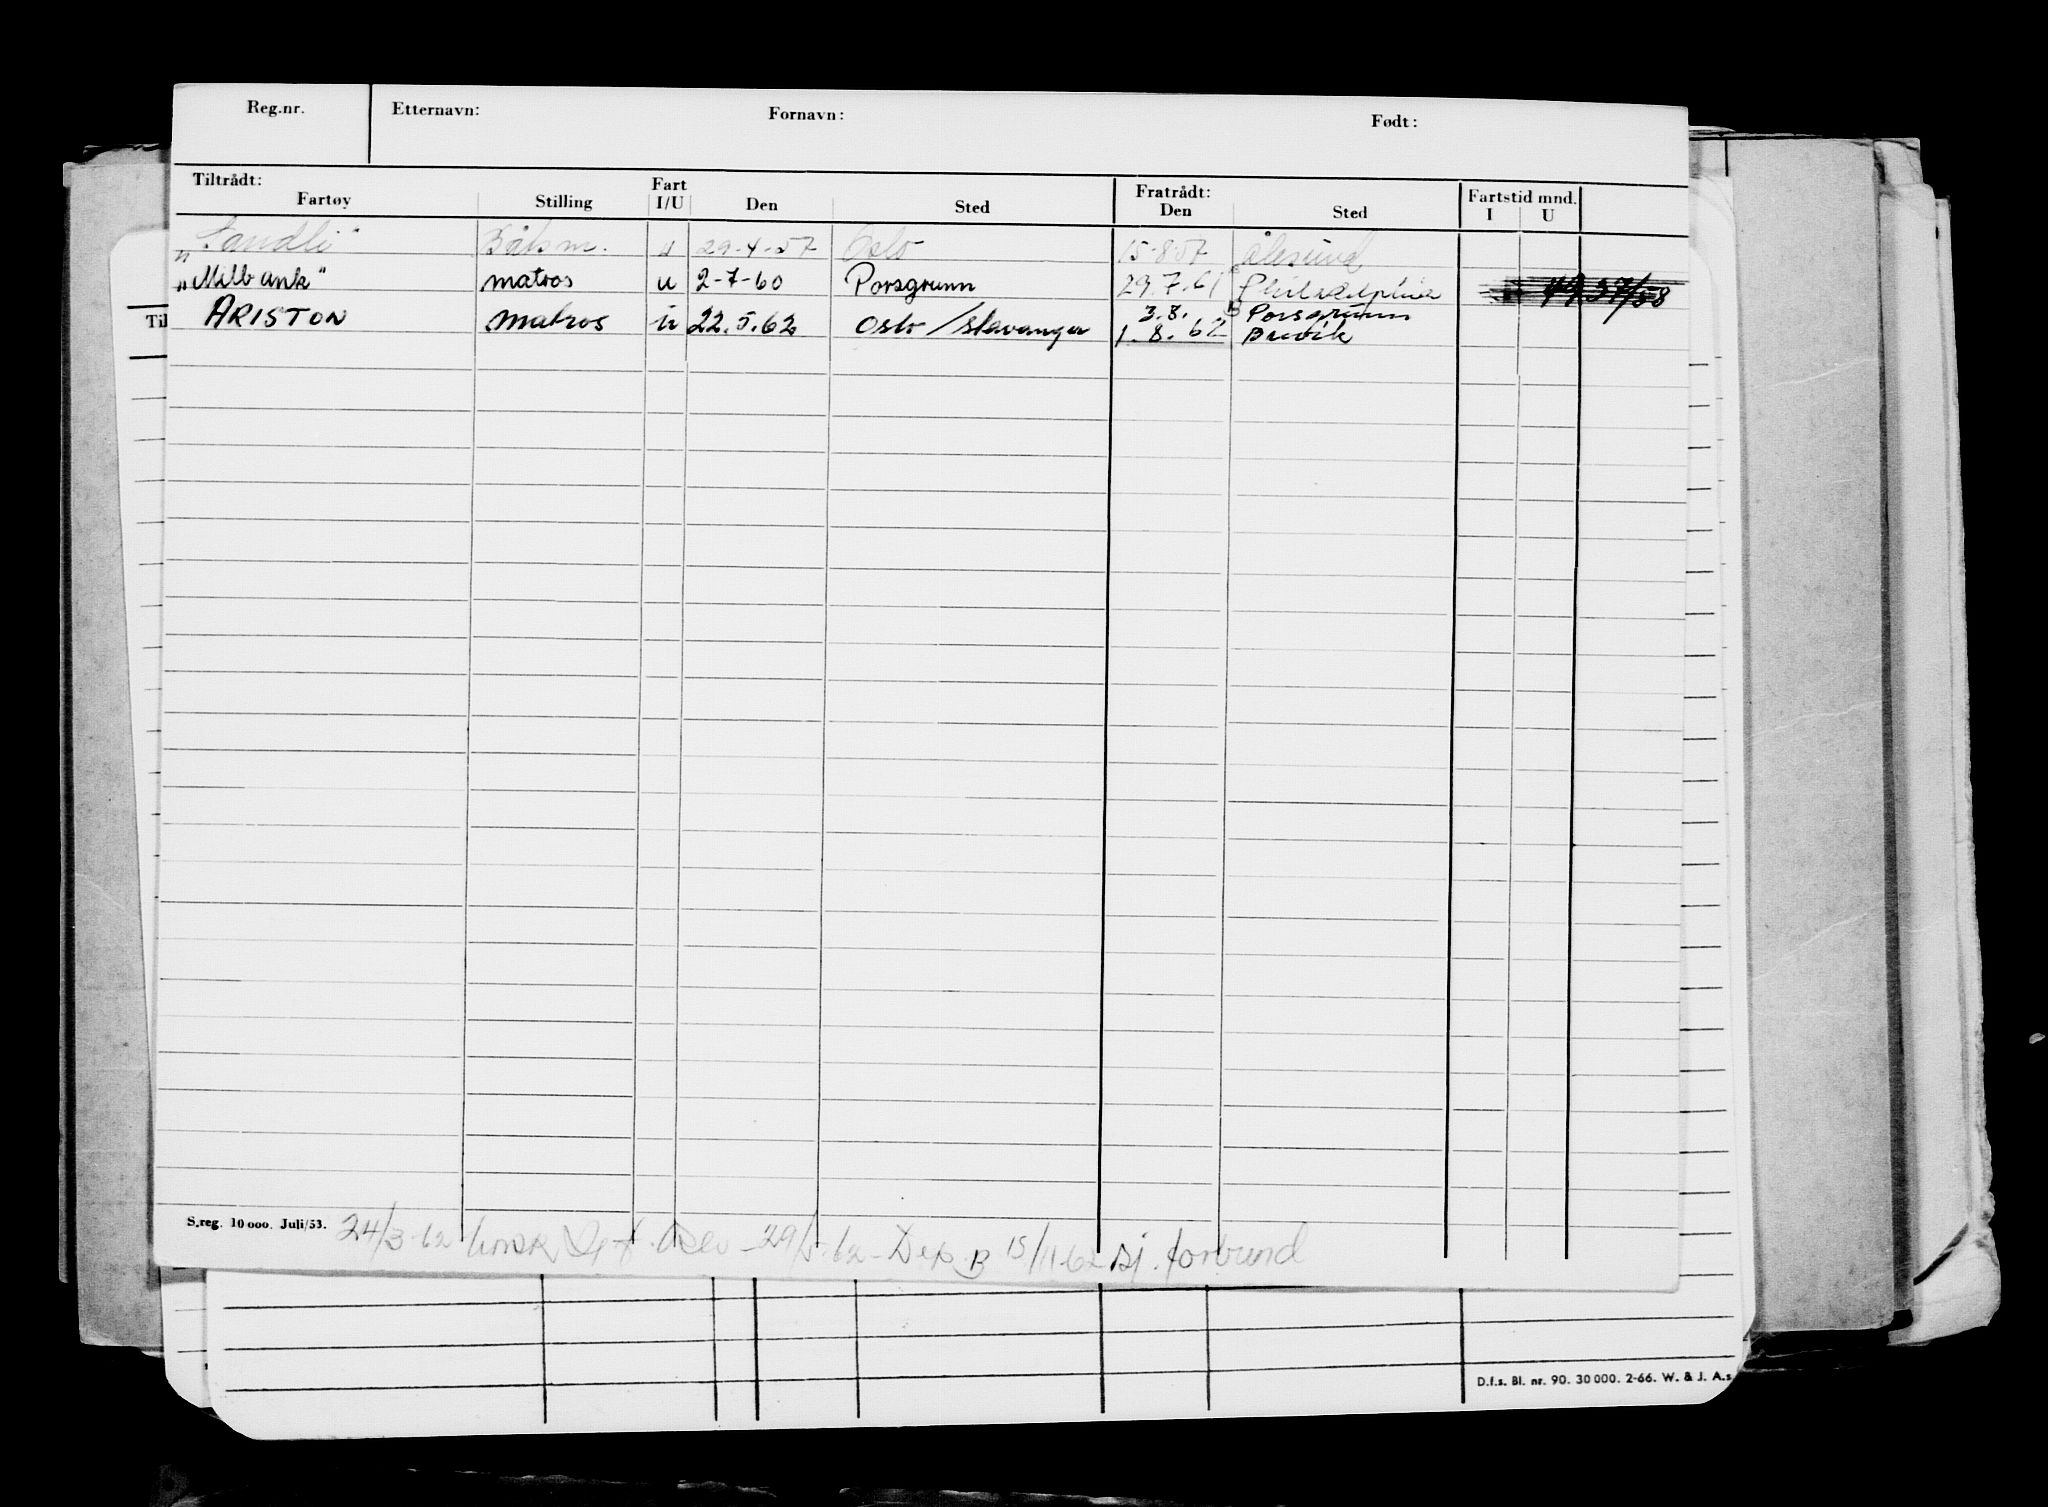 Reg.nr. Etternavn: Fornavn: Født:
Tiltrådt: Fart Fratrådt: Fartstid mnd.
Fartøy Stilling I/U Den Sted Den Sted I U
„Sandli" Båtsm. u 29-4-57 Oslo 15-8-57 Ålesund
„Milbank" matros u 2-7-60 Porsgrunn 29.7.61 Philadelphia 37/58
3.8. Porsgrunn
ARISTON matros u 22.5.62 Oslo/Stavanger 1.8.62 Brevik
Til
S.reg. 10 000. Juli/53. 24/3-62 Oslo - 29/5-62 - Dep. B 15/11-62 Sj. forbund
D.f.s. Bl. nr. 90. 30 000. 2-66. W. & J. A.s